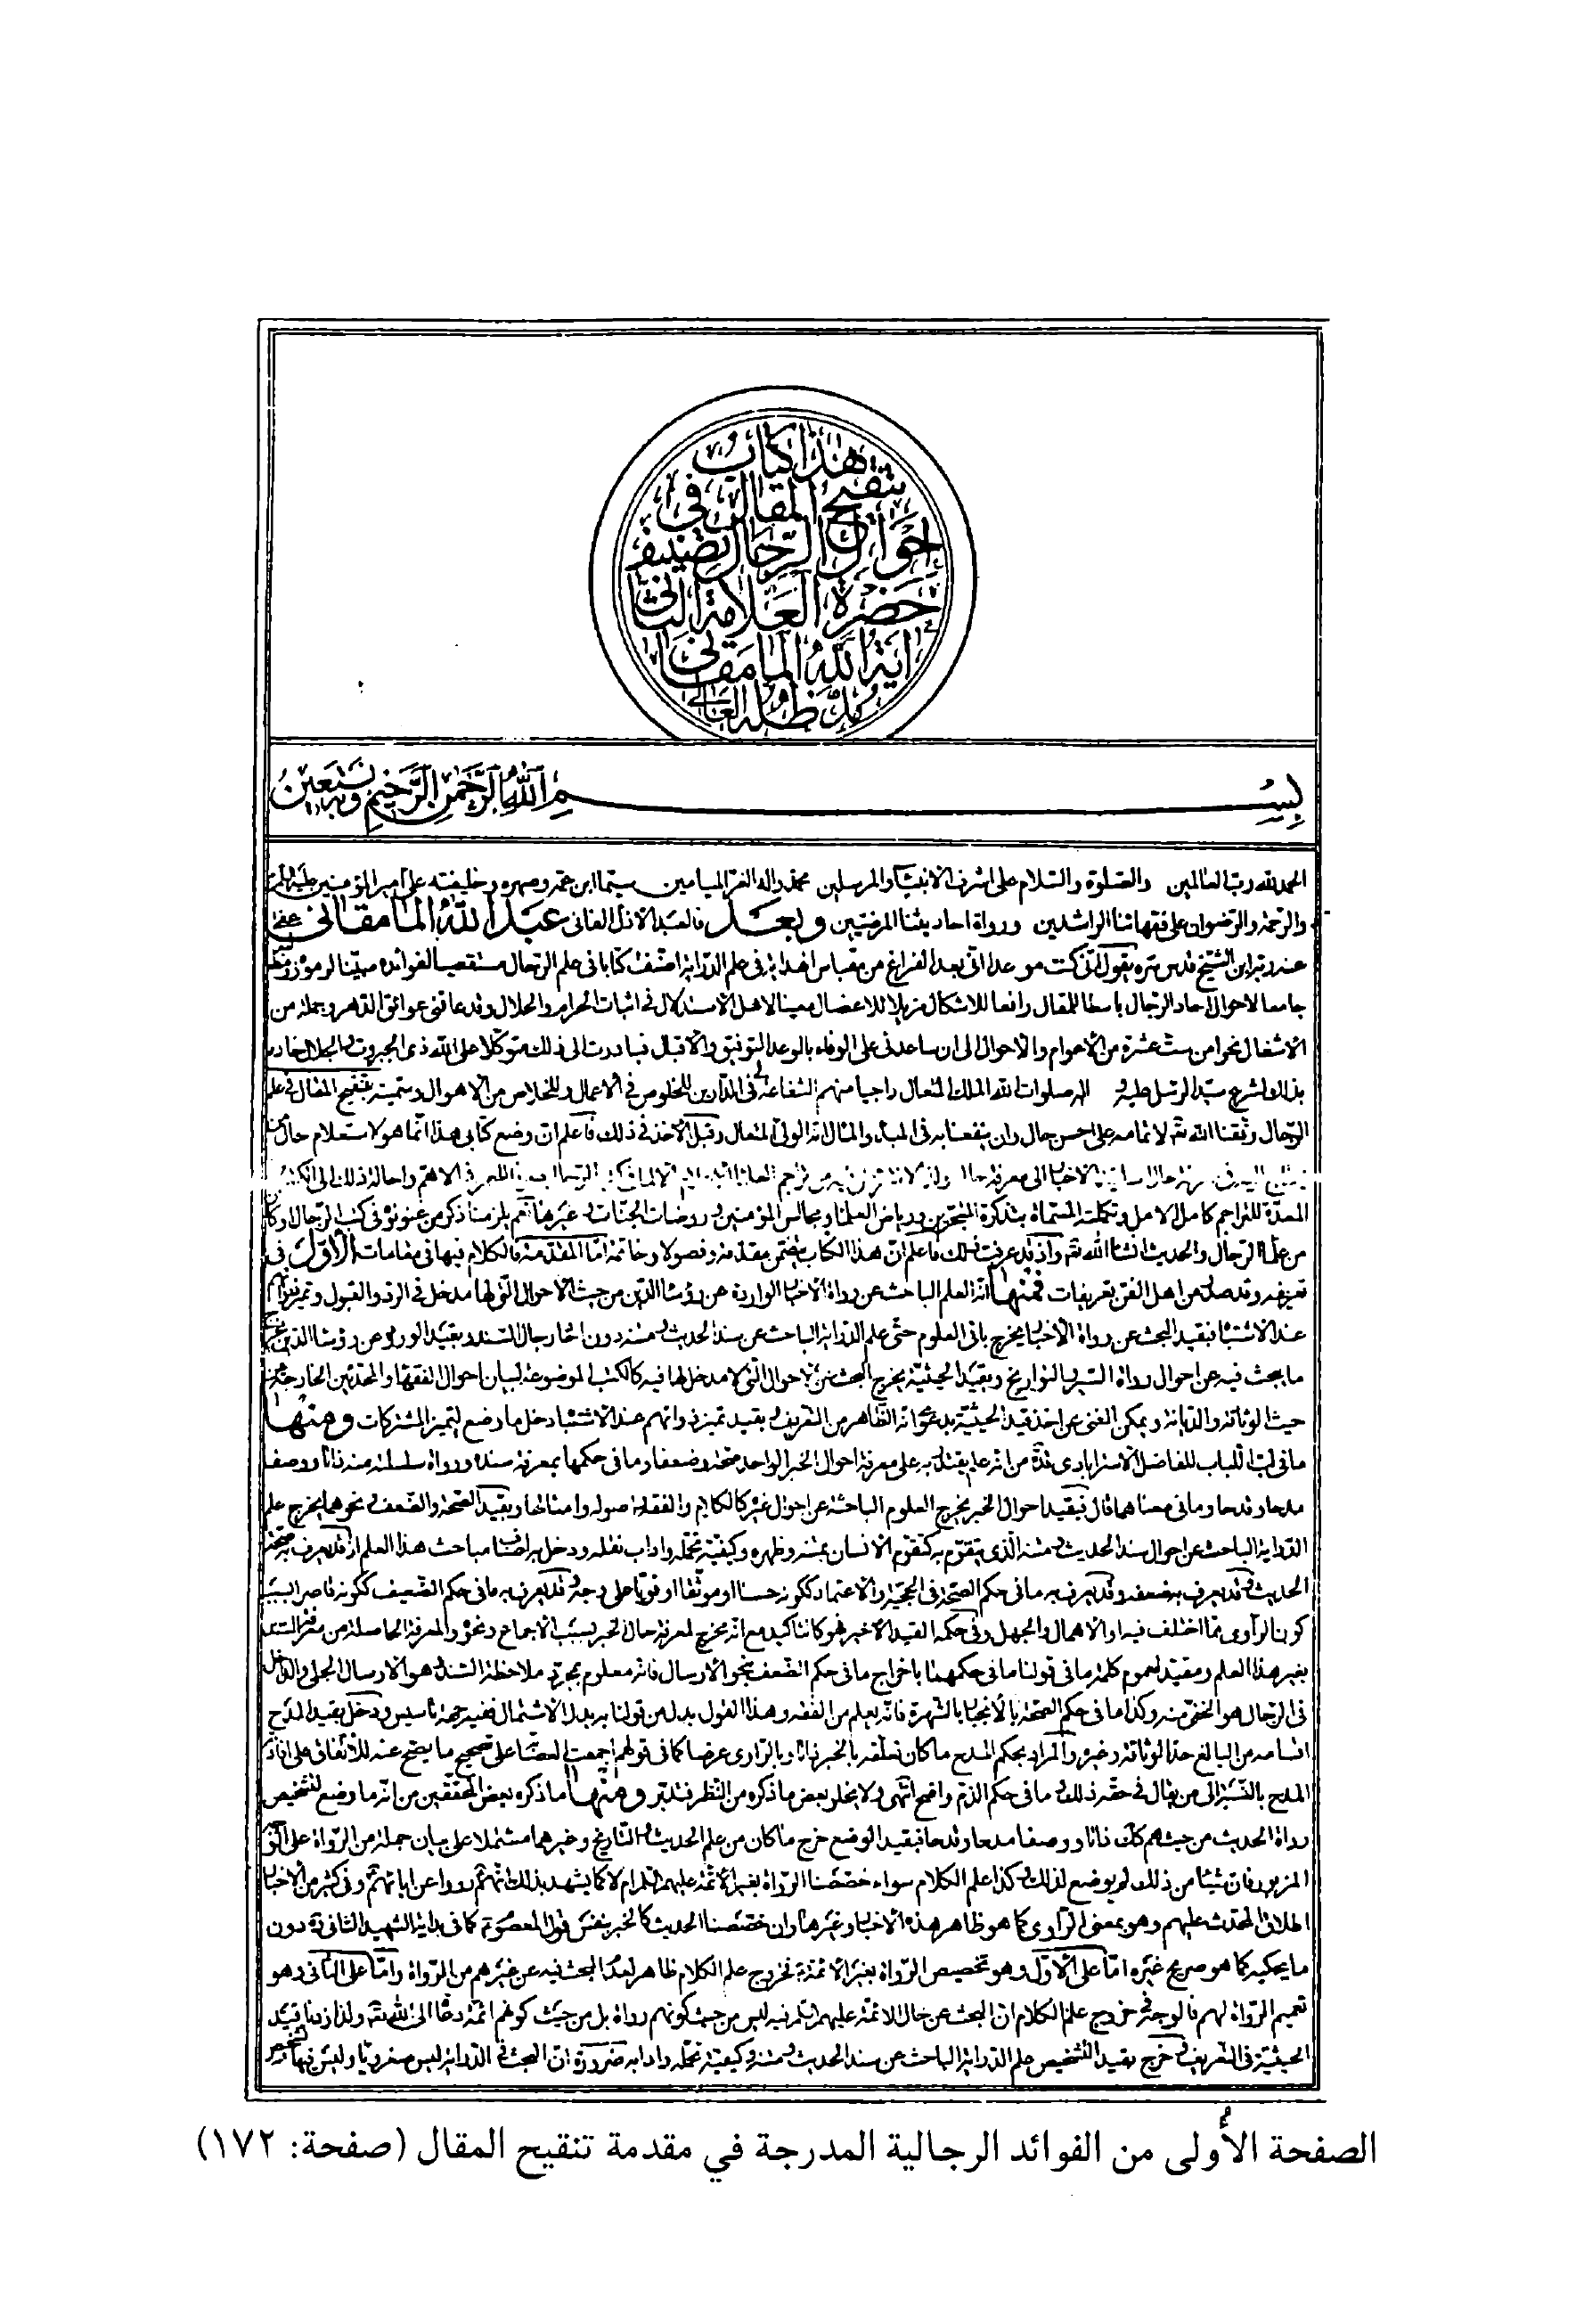 هذا كتاب
تنقيح المقال في
احوال الرجال تصنيف
حضرة العلامة الثاني
اية الله المامقاني
مد ظله العالي
بسم الله الرحمن الرحيم وبه نستعين
الحمد لله رب العالمين والصلوة والسلام على اشرف الانبياء والمرسلين محمد واله الغر الميامين سيما ابن عمه وصهره وخليفته على امير المؤمنين
والرحمة والرضوان على فقهائنا الراشدين ورواة احاديثنا المرضيين وبعد فالعبد الاذل الفاني عبد الله المامقاني عفى
عند ربه ابن الشيخ قدس سره يقول انى كنت موعدا انى بعد الفراغ من مقباس الهداية في علم الدراية اصنف كتابا في علم الرجال مستقصيا لفوائده مبينا لرموزه
جامعا لاحوال احاد الرجال باسطا للمقال رافعا للاشكال مزيلا للاعضال معينا لاهل الاستدلال في اثبات الحرام والحلال وقد عاقنى عوائق الدهر وجملة من
الاشغال نحوا من ست عشرة من الاعوام والاحوال الى ان ساعدنى على الوفاء بالوعد التوفيق والاقبال فبادرت الى ذلك متوكلا على الله ذى الجبروت والجلال
سيد الرسل عليه واله صلوات الله الملك المتعال راجيا منهم الشفاعة لى في الدارين للخلوص في الاعمال والخلاص من الاهوال وسميته بتنقيح المقال في علم
الرجال وفقنا الله تع لاتمامه على احسن حال وان ينفعنا به في المبدء والمال انه الولى المتعال وقبل الاخذ في ذلك فاعلم ان وضع كتابى هذا انما هو لاستعلام حال من
المعدة للتراجم كامل الامل وتكملته المسماة بتذكرة المتبحرين ورياض العلماء ومجالس المؤمنين وروضات الجنات وغيرها نعم يلزمنا ذكر من عنونوه في كتب الرجال
من علماء الرجال والحديث انشاء الله تع واذ قد عرفت ذلك فاعلم ان هذا الكتاب يتضمن مقدمة وفصولا وخاتمة اما المقدمة فالكلام فيها في مقامات الاول في
تعريفه وقد صدر من اهل الفن تعريفات فمنها انه العلم الباحث عن رواة الاخبار الواردة عن رؤساء الدين من حيث الاحوال التى لها مدخل في الرد والقبول وتميز ذواتهم
عند الاشتباه فبقيد البحث عن رواة الاخبار يخرج باقى العلوم حتى علم الدراية الباحث عن سند الحديث ومتنه دون احاد رجال السند وبقيد الورود عن رؤساء الدين يخرج
ما يبحث فيه عن احوال رواة السير والتواريخ وبقيد الحيثية يخرج البحث عن الاحوال التى لا مدخل لها فيه كالكتب الموضوعة لبيان احوال الفقهاء والمحدثين الخارجة من
حيث الوثاقة والديانة ويمكن الغنى عن اخذ قيد الحيثية بدعوى انه الظاهر من التعريف وبقيد تميز ذواتهم عند الاشتباه دخل ما وضع لتميز المشتركات ومنها
ما في لب اللباب للفاضل الاسترابادى قده من انه علم يقتدر به على معرفة احوال الخبر الواحد صحة وضعفا وما في حكمها بمعرفة سنده ورواة سلسلة متنه ذاتا ووصفا
مدحا وقدحا وما في معناهما قال فبقيد احوال الخبر يخرج العلوم الباحثة عن احوال غيره كالكلام والفقه واصوله وامثالها وبقيد الصحة والضعف ونحوهما يخرج علم
الدراية الباحث عن احوال سند الحديث ومتنه الذى يتقوم به كتقوم الانسان بمتنه وظهره وكيفية تحمله واداب نقله ودخل به اصناف مباحث هذا العلم اذ قد يعرف به صحة
الحديث وقد يعرف به ضعفه وقد يعرف به ما في حكم الصحة في الحجية والاعتماد ككونه حسنا او موثقا او قويا على وجه وقد يعرف به ما في حكم الضعيف ككونه قاصرا بسبب
كون الراوى مما اختلف فيه او الاهمال والجهل وفي حكمه القيد الاخير فهو كالتاكيد مع انه مخرج لمعرفة حال الخبر بسبب الاجماع ونحوه والمعرفة الحاصلة من معرفة السند
بغير هذا العلم ومفيد لعموم كلمة ما في قولنا ما في حكمهما باخراج ما في حكم الضعف بنحو الارسال فانه معلوم بمجرد ملاحظة السند وهو الارسال الجلى والداخل
في الرجال هو الخفى منه وكذا ما في حكم الصحة بالانجبار بالشهرة فانه يعلم من الفقه وهذا القول بدل من قولنا به بدل الاشتمال ففيه جهة تاسيس ودخل بقيد المدح
اقسامه من البالغ حد الوثاقة وغيره والمراد بحكم المدح ما كان تعلقه بالخبر ذاتا وبالراوى عرضا كما في قولهم اجمعت العصابة على تصحيح ما يصح عنه للاتفاق على افادة
المدح بالنسبة الى من يقال في حقه ذلك وما في حكم الذم واضح انتهى ولا يخلو بعض ما ذكره من النظر فتدبر ومنها ما ذكره بعض المحققين من انه ما وضع لتشخيص
رواة الحديث من حيث هم كذلك ذاتا ووصفا مدحا وقدحا فبقيد الوضع خرج ما كان من علم الحديث والتاريخ وغيرهما مشتملا على بيان جملة من الرواة على الوجه
المزبور فان شيئا من ذلك لم يوضع لذلك وكذا علم الكلام سواء خصصنا الرواة بغير الائمة عليهم السلام لا كما يشهد بذلك انهم رووا عن ابائهم وفي كثير من الاخبار
اطلاق المحدث عليهم وهو بمعنى الراوى كما هو ظاهر هذه الاخبار وغيرها وان خصصنا الحديث كالخبر بنفس قول المعصوم كما في بداية الشهيد الثانى ره دون
ما يحكيه كما هو صريح غيره اما على الاول وهو تخصيص الرواة بغير الائمة فخروج علم الكلام ظاهر لعدم البحث فيه عن غيرهم من الرواة واما على الثانى وهو
تعميم الرواة لهم فالوجه في خروج علم الكلام ان البحث عن حال الائمة عليهم السلم فيه ليس من حيث كونهم رواة بل من حيث كونهم ائمة دعاة الى الله تع ولذا زدنا قيد
الحيثية في التعريف وخرج بقيد التشخيص علم الدراية الباحث عن سند الحديث ومتنه وكيفية تحمله وادابه ضرورة ان البحث في الدراية ليس صغرويا وليس فيها تشخيص
الصفحة الأولى من الفوائد الرجالية المدرجة في مقدمة تنقيح المقال (صفحة: ١٧٢)